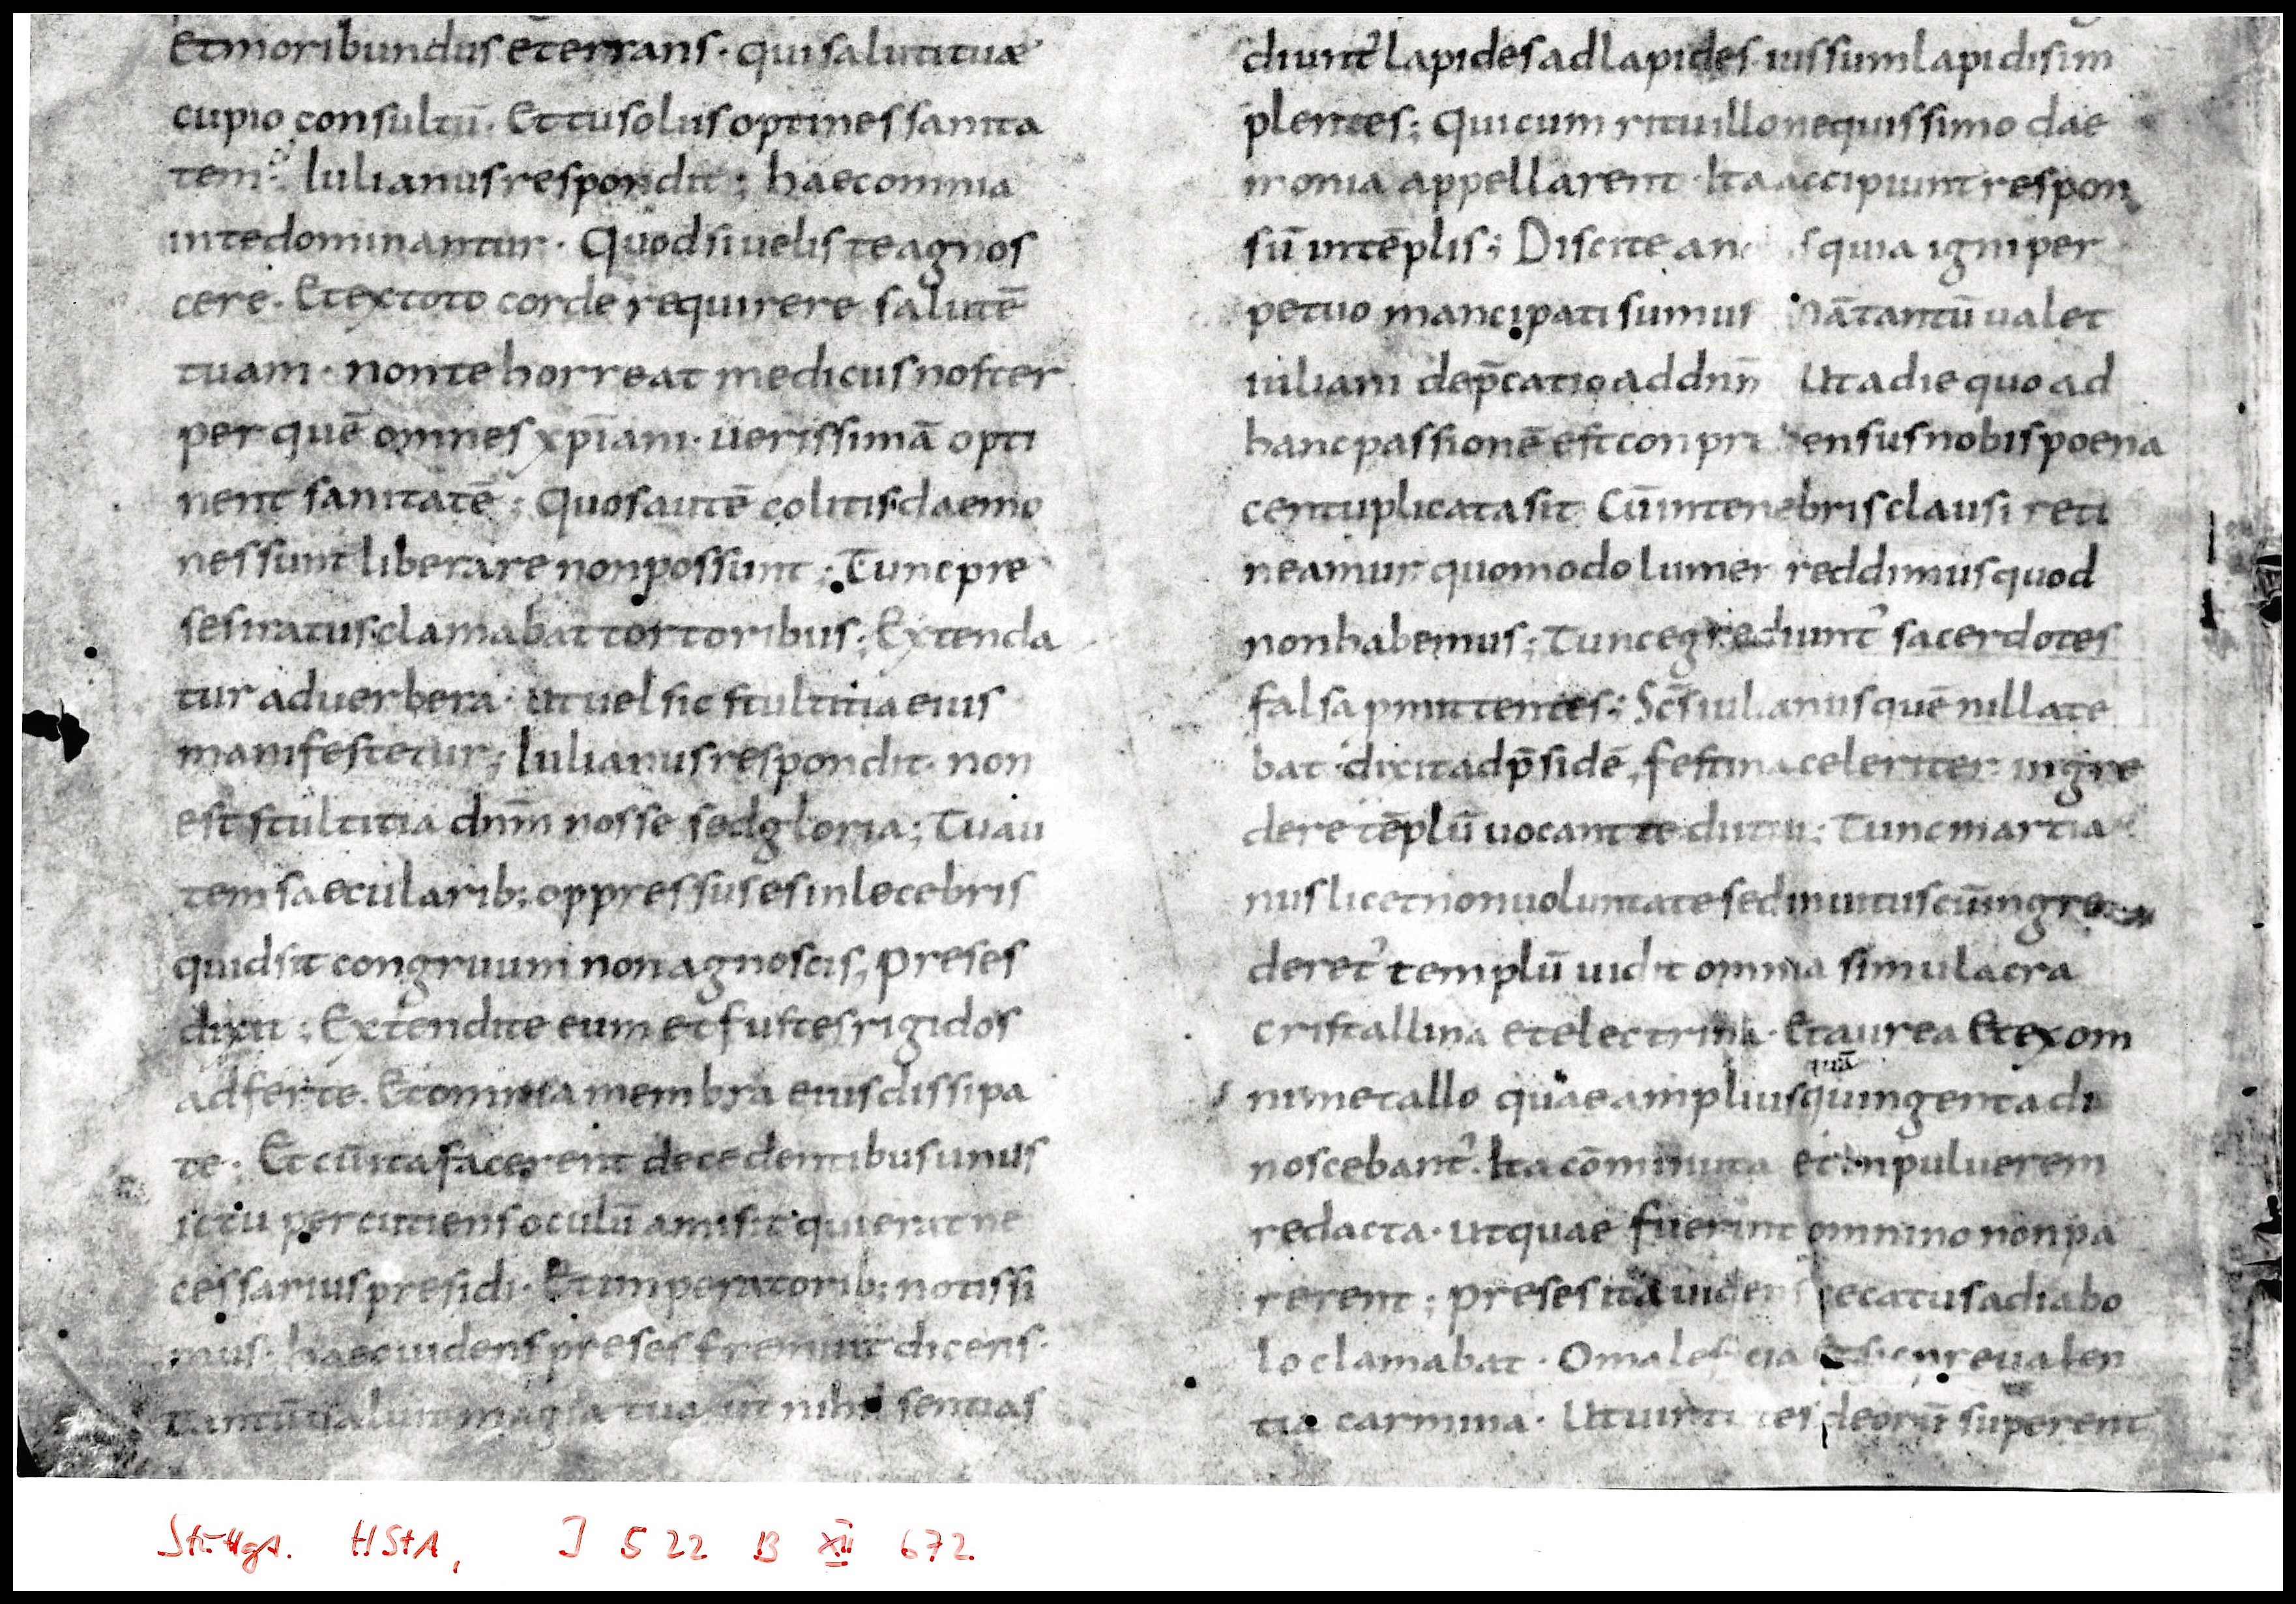 Et moribundus et errans · qui saluti tuae
cupio consultū · Et tu solus optines sanita
tem ; Iulianus respondit ; haec omnia
in te dominantur · Quod si uelis te agnos
cere · Et ex toto corde requirere salutē
tuam · non te horreat medicus noster
per quē omnes xp̄iani · uerissimā opti
nent sanitatē ; Quos autē colitis daemo
nes sunt liberare non possunt ; Tunc pre
ses iratus clamabat tortoribus ; Extenda
tur ad uerbera · ut uel sic stultitia eius
manifestetur ; Iulianus respondit · non
est stultitia dnm̄ nosse sed gloria ; Tu au
tem saecularib; oppressus es inlecebris
quid sit congruum non agnoscis ; preses
dixit ; Extendite eum et fustes rigidos
adferte · Et omnia membra eius dissipa
te · Et cū ita facerent decedentibus unus
ictu percutiens oculū amisit qui erat ne
cessarius presidi · Et imperatorib; notissi
mus · haec uidens preses fremuit dicens ·
Tantū ualuit magia tua ut nihil sentias
diunt' lapides ad lapides · iussum lapidis im
plentes ; Qui cum ritu illo nequissimo dae
monia appellarent · Ita accipiunt respon
sū in tēplis ; Discite quia igni per
petuo mancipati sumus Nā tantū ualet
iuliani dep̄catio ad dnm̄ Ut a die quo ad
hanc passionē est conprensus nobis poena
centuplicata sit Cū in tenebris clausi reti
neamur quomodo lumen reddimus quod
non habemus ; Tunc egrediunt' sacerdotes
falsa pmittentes ; Scs̄ iulianus quē nil late
bat · dixit ad p̄sidē , festina celeriter ingre
dere tēplū uocant te dii tui ; Tunc martia
nus licet non uoluntate sed inuitus cū ingre
deret' templū uidit omnia simulacra
cristallina et electrina · Et aurea Et ex om
ni metallo quae amplius quā quingenta di
noscebant' · Ita cōminuta et in puluerem
redacta · ut quae fuerint omnino non pa
rerent ; preses ita uidens uecatus a diabo
lo clamabat · O maleficia Et sic preualen
tia carmina · Ut deorū superent
Stuttgt. HStA, J 522 B XII 672.